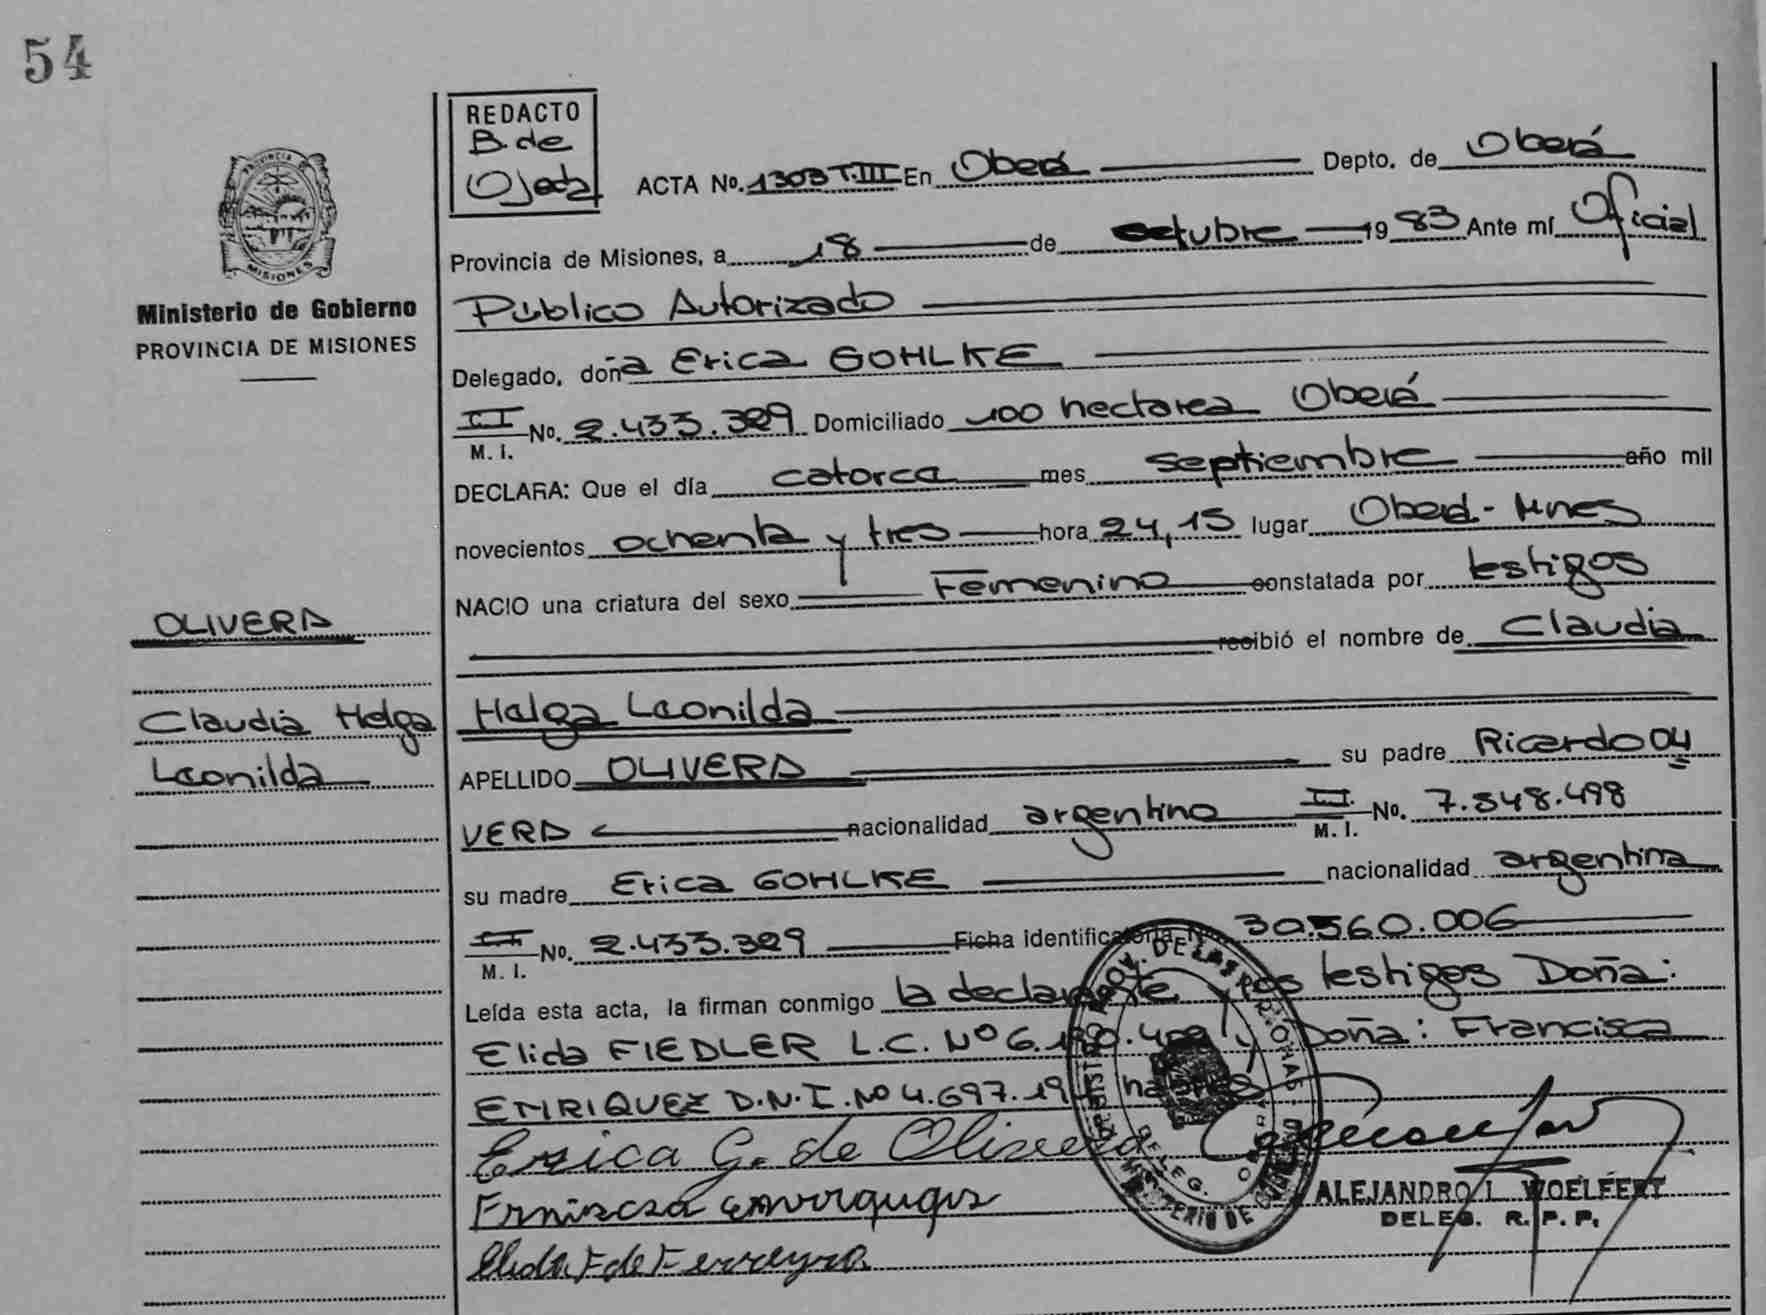 54
REDACTO
B. de
Ojeda
ACTA No. 1303 T.III En Oberá Depto. de Oberá
Provincia de Misiones, a 18 de octubre 19 83 Ante mí Oficial
Público Autorizado
Delegado, doña Erica GOHLKE
M. I. No. 2.433.329 Domiciliado 100 hectarea Oberá
DECLARA: Que el día catorce mes septiembre año mil
novecientos ochenta y tres hora 24,15 lugar Oberá - Mnes
NACIO una criatura del sexo Femenino constatada por testigos
recibió el nombre de Claudia
Helga Leonilda
APELLIDO OLIVERA su padre Ricardo OLI
VERA nacionalidad argentino M. I. No. 7.548.498
su madre Erica GOHLKE nacionalidad argentina
M. I. No. 2.433.329 Ficha identificatoria No. 30.560.006
Leída esta acta, la firman conmigo la declarante y los testigos Doña:
Elida FIEDLER L.C. Nº 6. Doña: Francisca
ENRIQUEZ D.N.I. Nº 4.697.19
Erica G. de Olivera
Elida F de Ferreyra
ALEJANDRO L. WOELFERT
DELEG. R. P. P.
PROVINCIA DE
MISIONES
Ministerio de Gobierno
PROVINCIA DE MISIONES
OLIVERA
Claudia Helga
Leonilda
REGISTRO PROV. DE LAS PERSONAS
DELEG.
MINISTERIO DE GOBIERNO